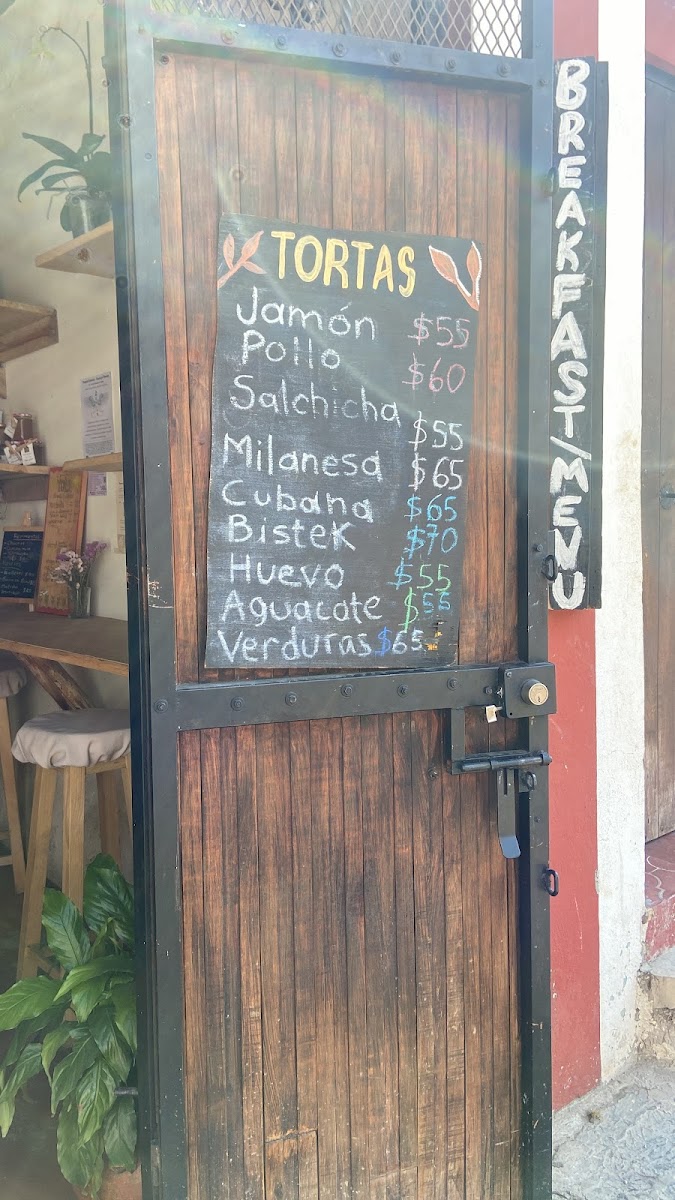 TORTAS
Jamón $55
Pollo $60
Salchicha $55
Milanesa $65
Cubana $65
Bistek $70
Huevo $55
Aguacate $55
Verduras $65
BREAKFAST/MENU